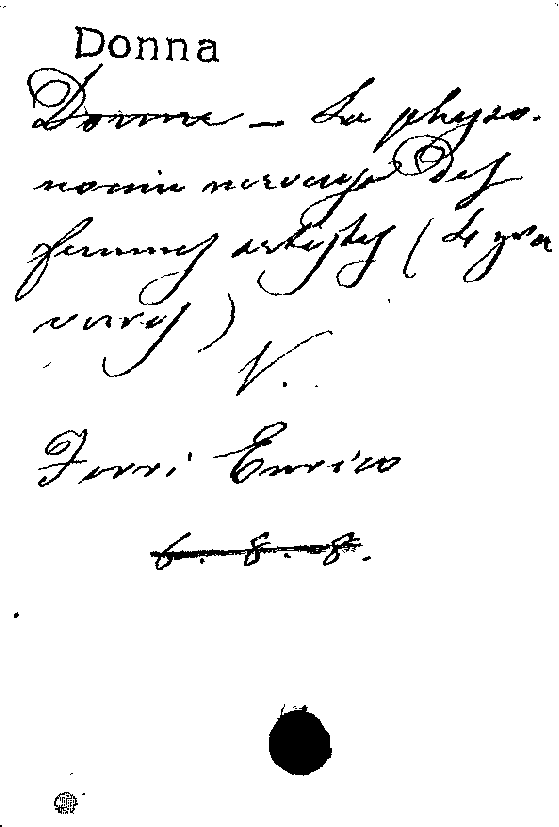 Donna
Donne - La physo-
nomie nerveuse des
femmes artistes (4 gra
vures)
V.
Ferri Enrico
6. 8. 8.